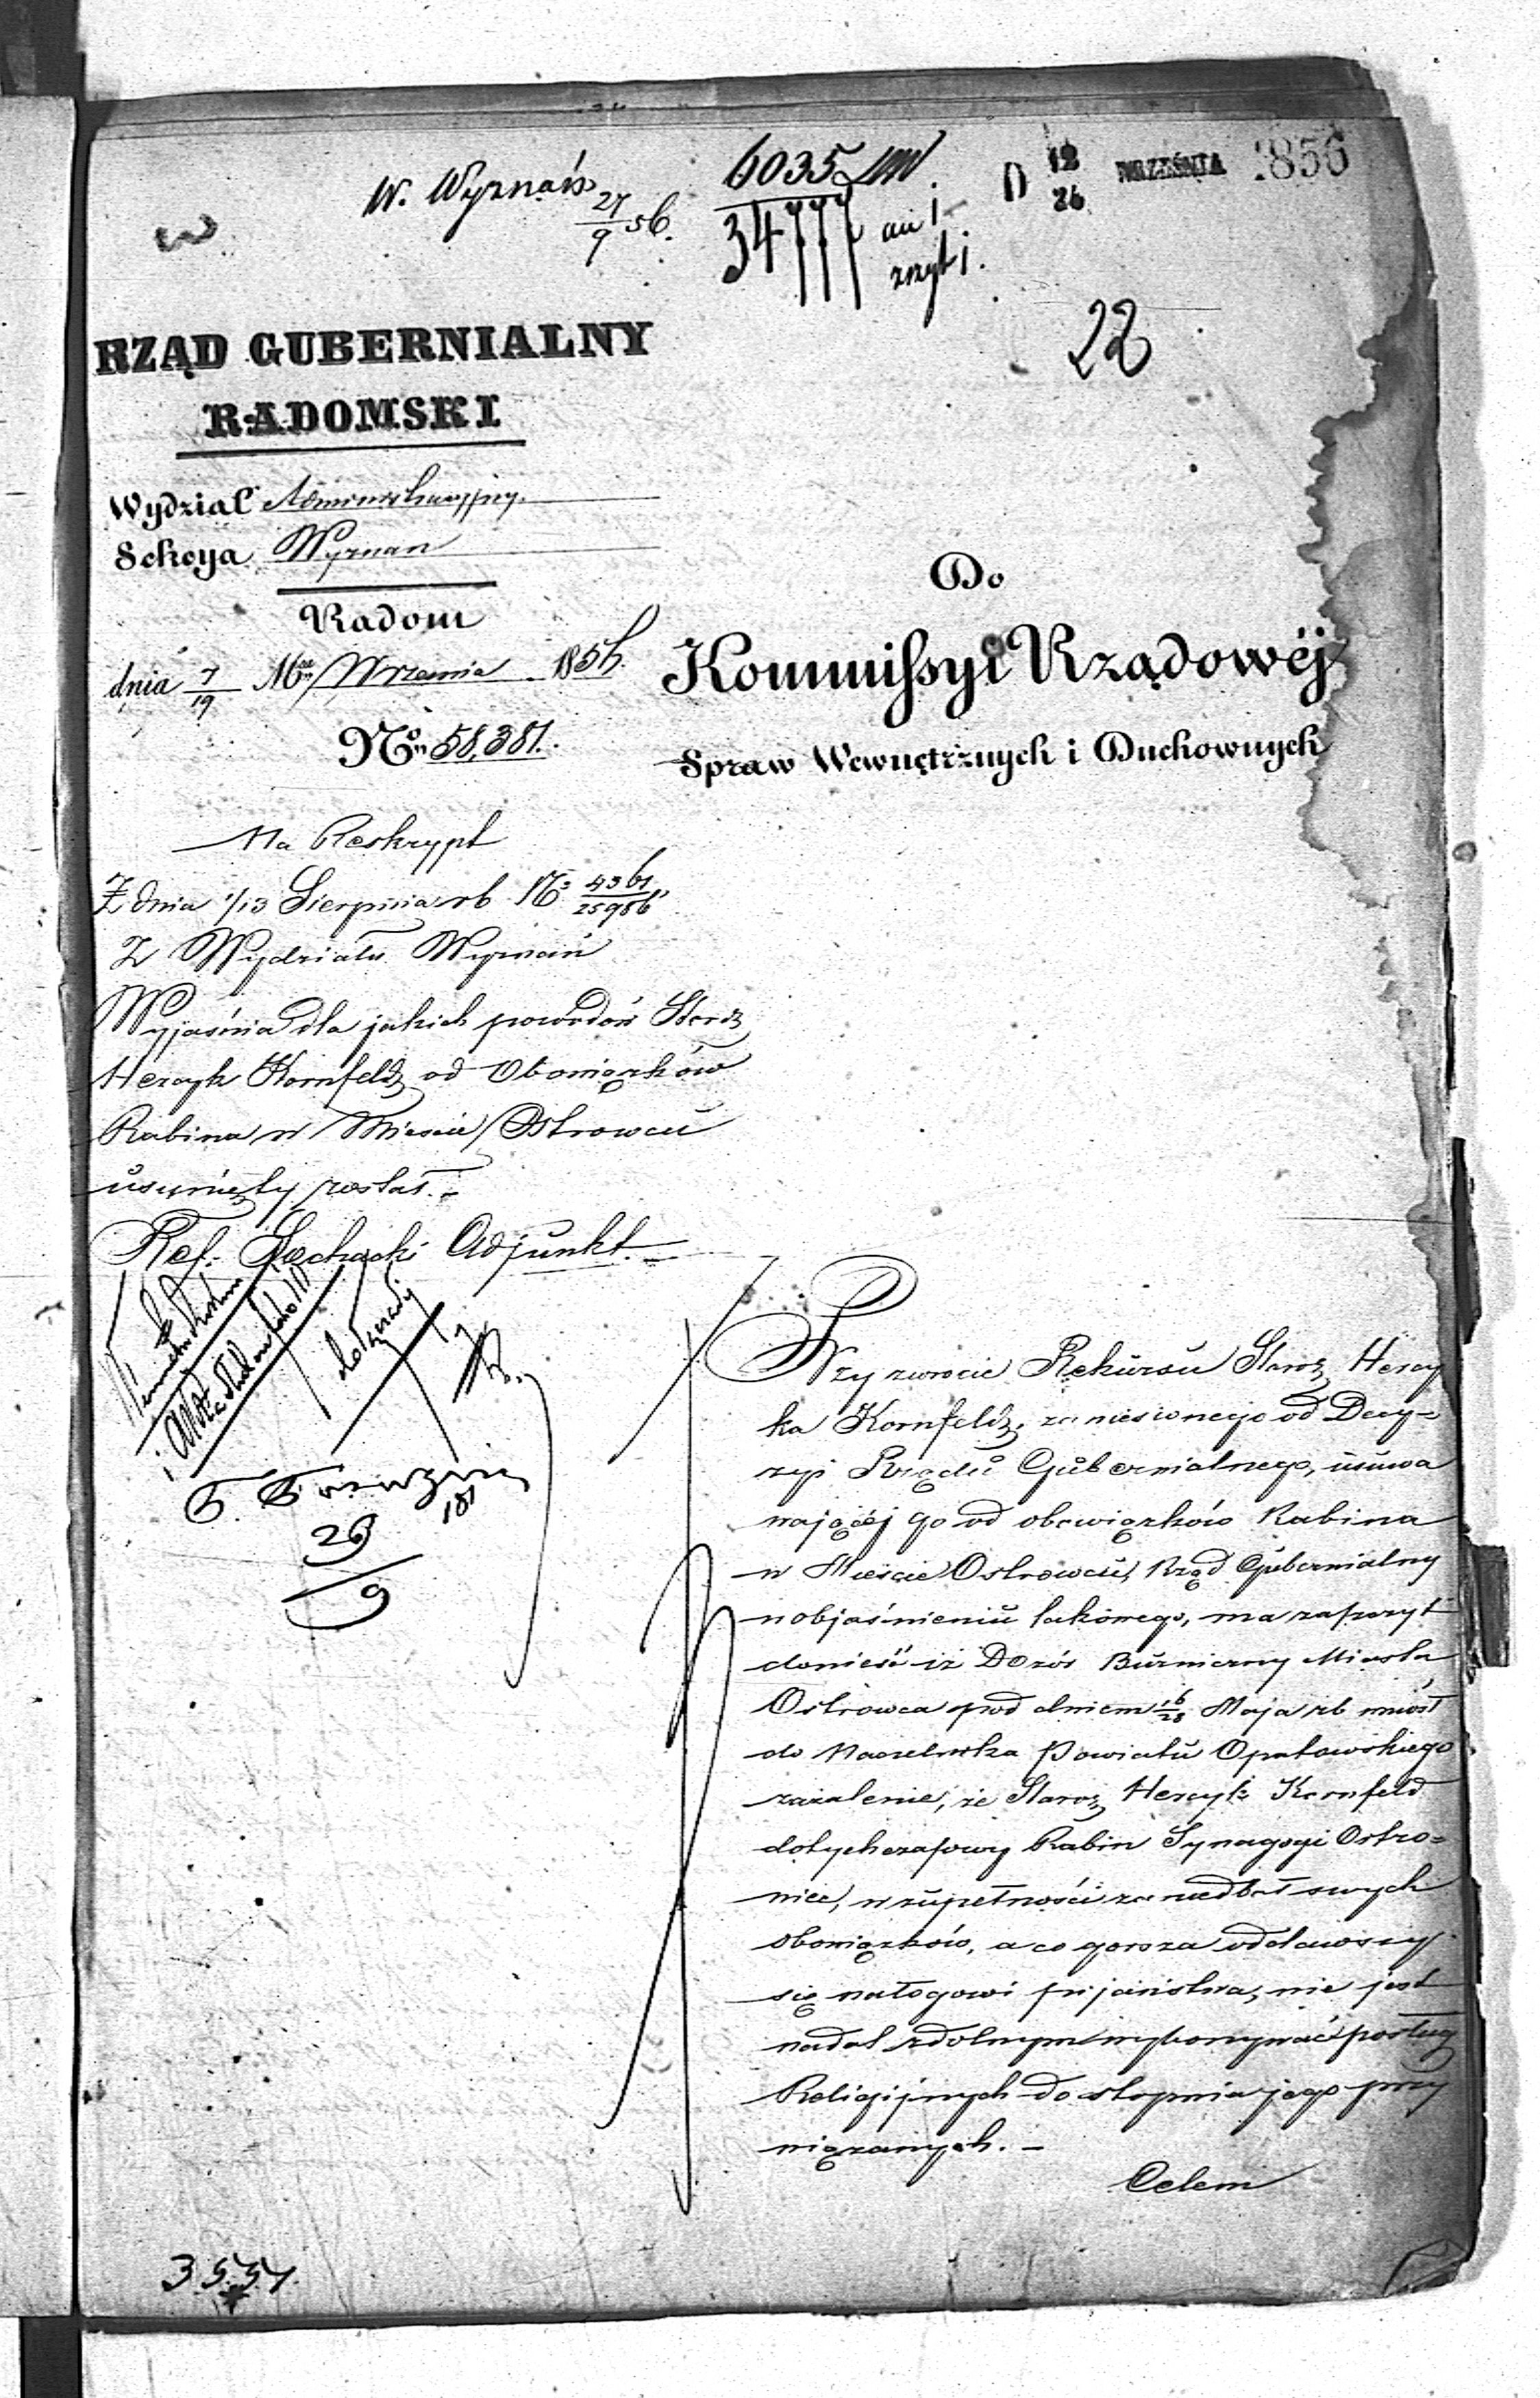 W. Wyznań
27/9 56.
6035
34777
an 1
zszyt 1.
D 12/24 WRZEŚNIA 1856
22
RZĄD GUBERNIALNY
RADOMSKI
Wydział Administracyjny
Sekcya Wyznań
Radom
dnia 7/19 Września 1856.
No 58,381.
Do
Kommissyi Rządowéj
Spraw Wewnętrznych i Duchownych
Na Reskrypt
Z dnia 1/13 Sierpnia rb No 4361/25986
Z Wydziału Wyznań
Wyjaśnia dla jakich powodów Staroz
Hercyk Kornfeld od Obowiązków
Rabina w Mieście Ostrowcu
usunięty został.-
Ref: Adjunkt.-
26/9
Przy zwrocie Rekursu Staroz Hercy
ka Kornfeld, zaniesionego od Decy=
zyi Rządu Gubernialnego, usuwa
nającéj go od obowiązków Rabina
w Mieście Ostrowcu, Rząd Gubernialny
w objaśnieniu takowego, ma zaszczyt
donieść iż Dozór Bużniczny Miasta
Ostrowca pod dniem 16/28 Maja rb wniósł
do Naczelnika Powiatu Opatowskiego
zażalenie, że Staroz Hercyk Kornfeld
dotychczasowy Rabin Synagogi Ostro=
wiec, w zupełności zaniedbał swych
obowiązków, a co gorsza oddawszy
się nałogowi pijaństwa, nie jest
nadal zdolnym wykonywać posług
Religijnych do stopnia jego przy
wiązanych.-
Celem
3534.